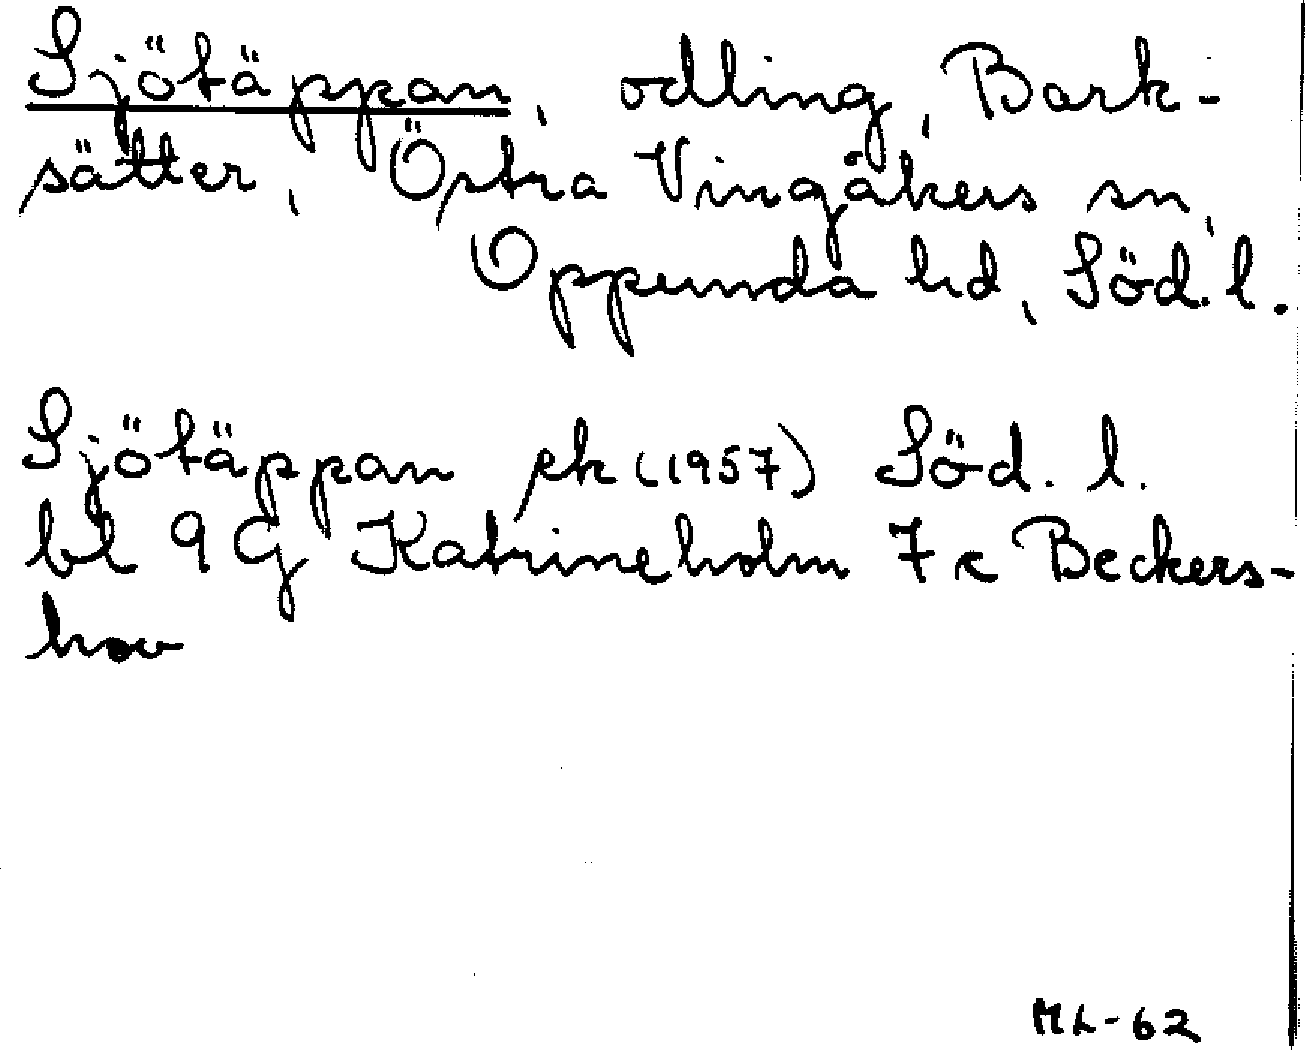 Sjötäppan, odling, Bark-
sätter, Östra Vingåkers sn,
Oppunda hd, Söd. l.
Sjötäppan ek (1957) Söd. l.
bl 9 G Katrineholm 7c Beckers-
hov
ML-62